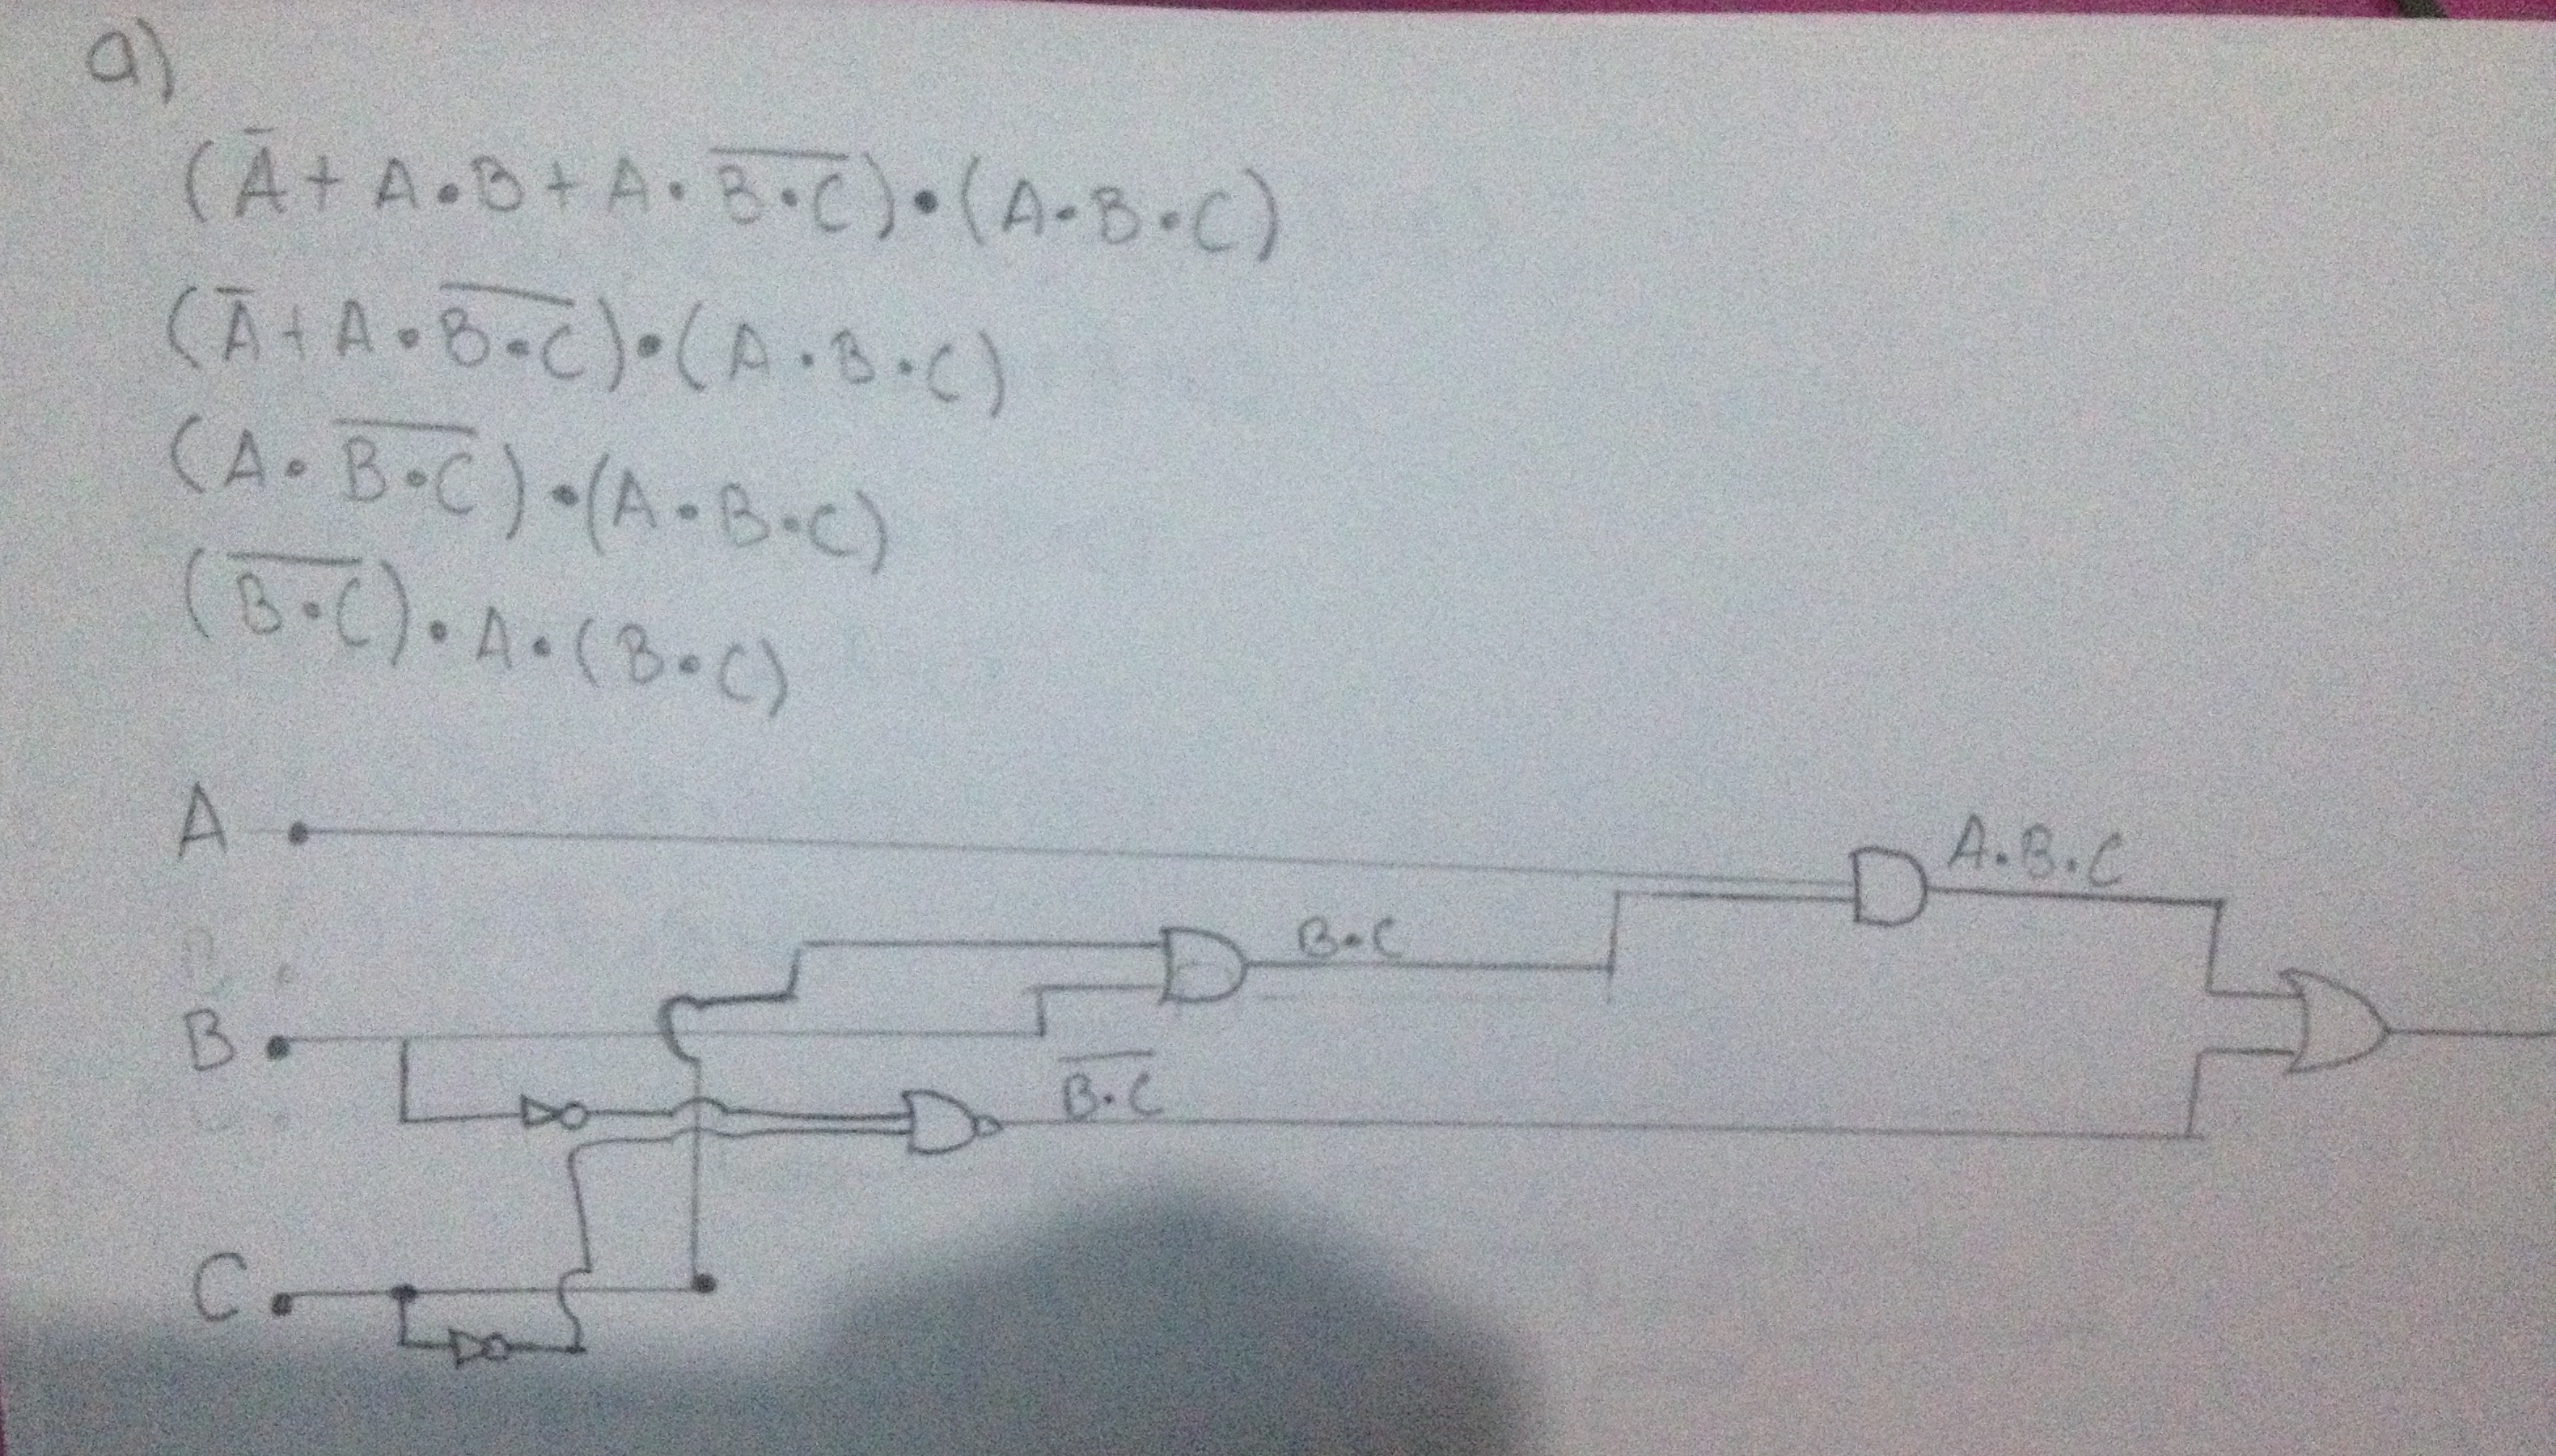 a)
(A̅ + A•B + A•B̅•̅C̅)•(A•B•C)
(A̅ + A•B̅•̅C̅)•(A•B•C)
(A•B̅•̅C̅)•(A•B•C)
(B̅•̅C̅)•A•(B•C)
A
A•B•C
B•C
B
B̅•̅C̅
C